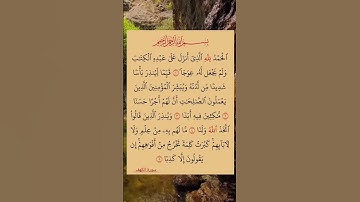 بسم الله الرحمن الرحيم
ٱلْحَمْدُ لِلَّهِ ٱلَّذِىٓ أَنزَلَ عَلَىٰ عَبْدِهِ ٱلْكِتَـٰبَ
وَلَمْ يَجْعَل لَّهُۥ عِوَجَا ۜ ١ قَيِّمًا لِّيُنذِرَ بَأْسًا
شَدِيدًا مِّن لَّدُنْهُ وَيُبَشِّرَ ٱلْمُؤْمِنِينَ ٱلَّذِينَ
يَعْمَلُونَ ٱلصَّـٰلِحَـٰتِ أَنَّ لَهُمْ أَجْرًا حَسَنًا
٢ مَّـٰكِثِينَ فِيهِ أَبَدًا ٣ وَيُنذِرَ ٱلَّذِينَ قَالُوا۟
ٱتَّخَذَ ٱللَّهُ وَلَدًا ٤ مَّا لَهُم بِهِۦ مِنْ عِلْمٍ وَلَا
لِـَٔابَآئِهِمْ كَبُرَتْ كَلِمَةً تَخْرُجُ مِنْ أَفْوَٰهِهِمْ إِن
يَقُولُونَ إِلَّا كَذِبًا ٥
سورة الكهف